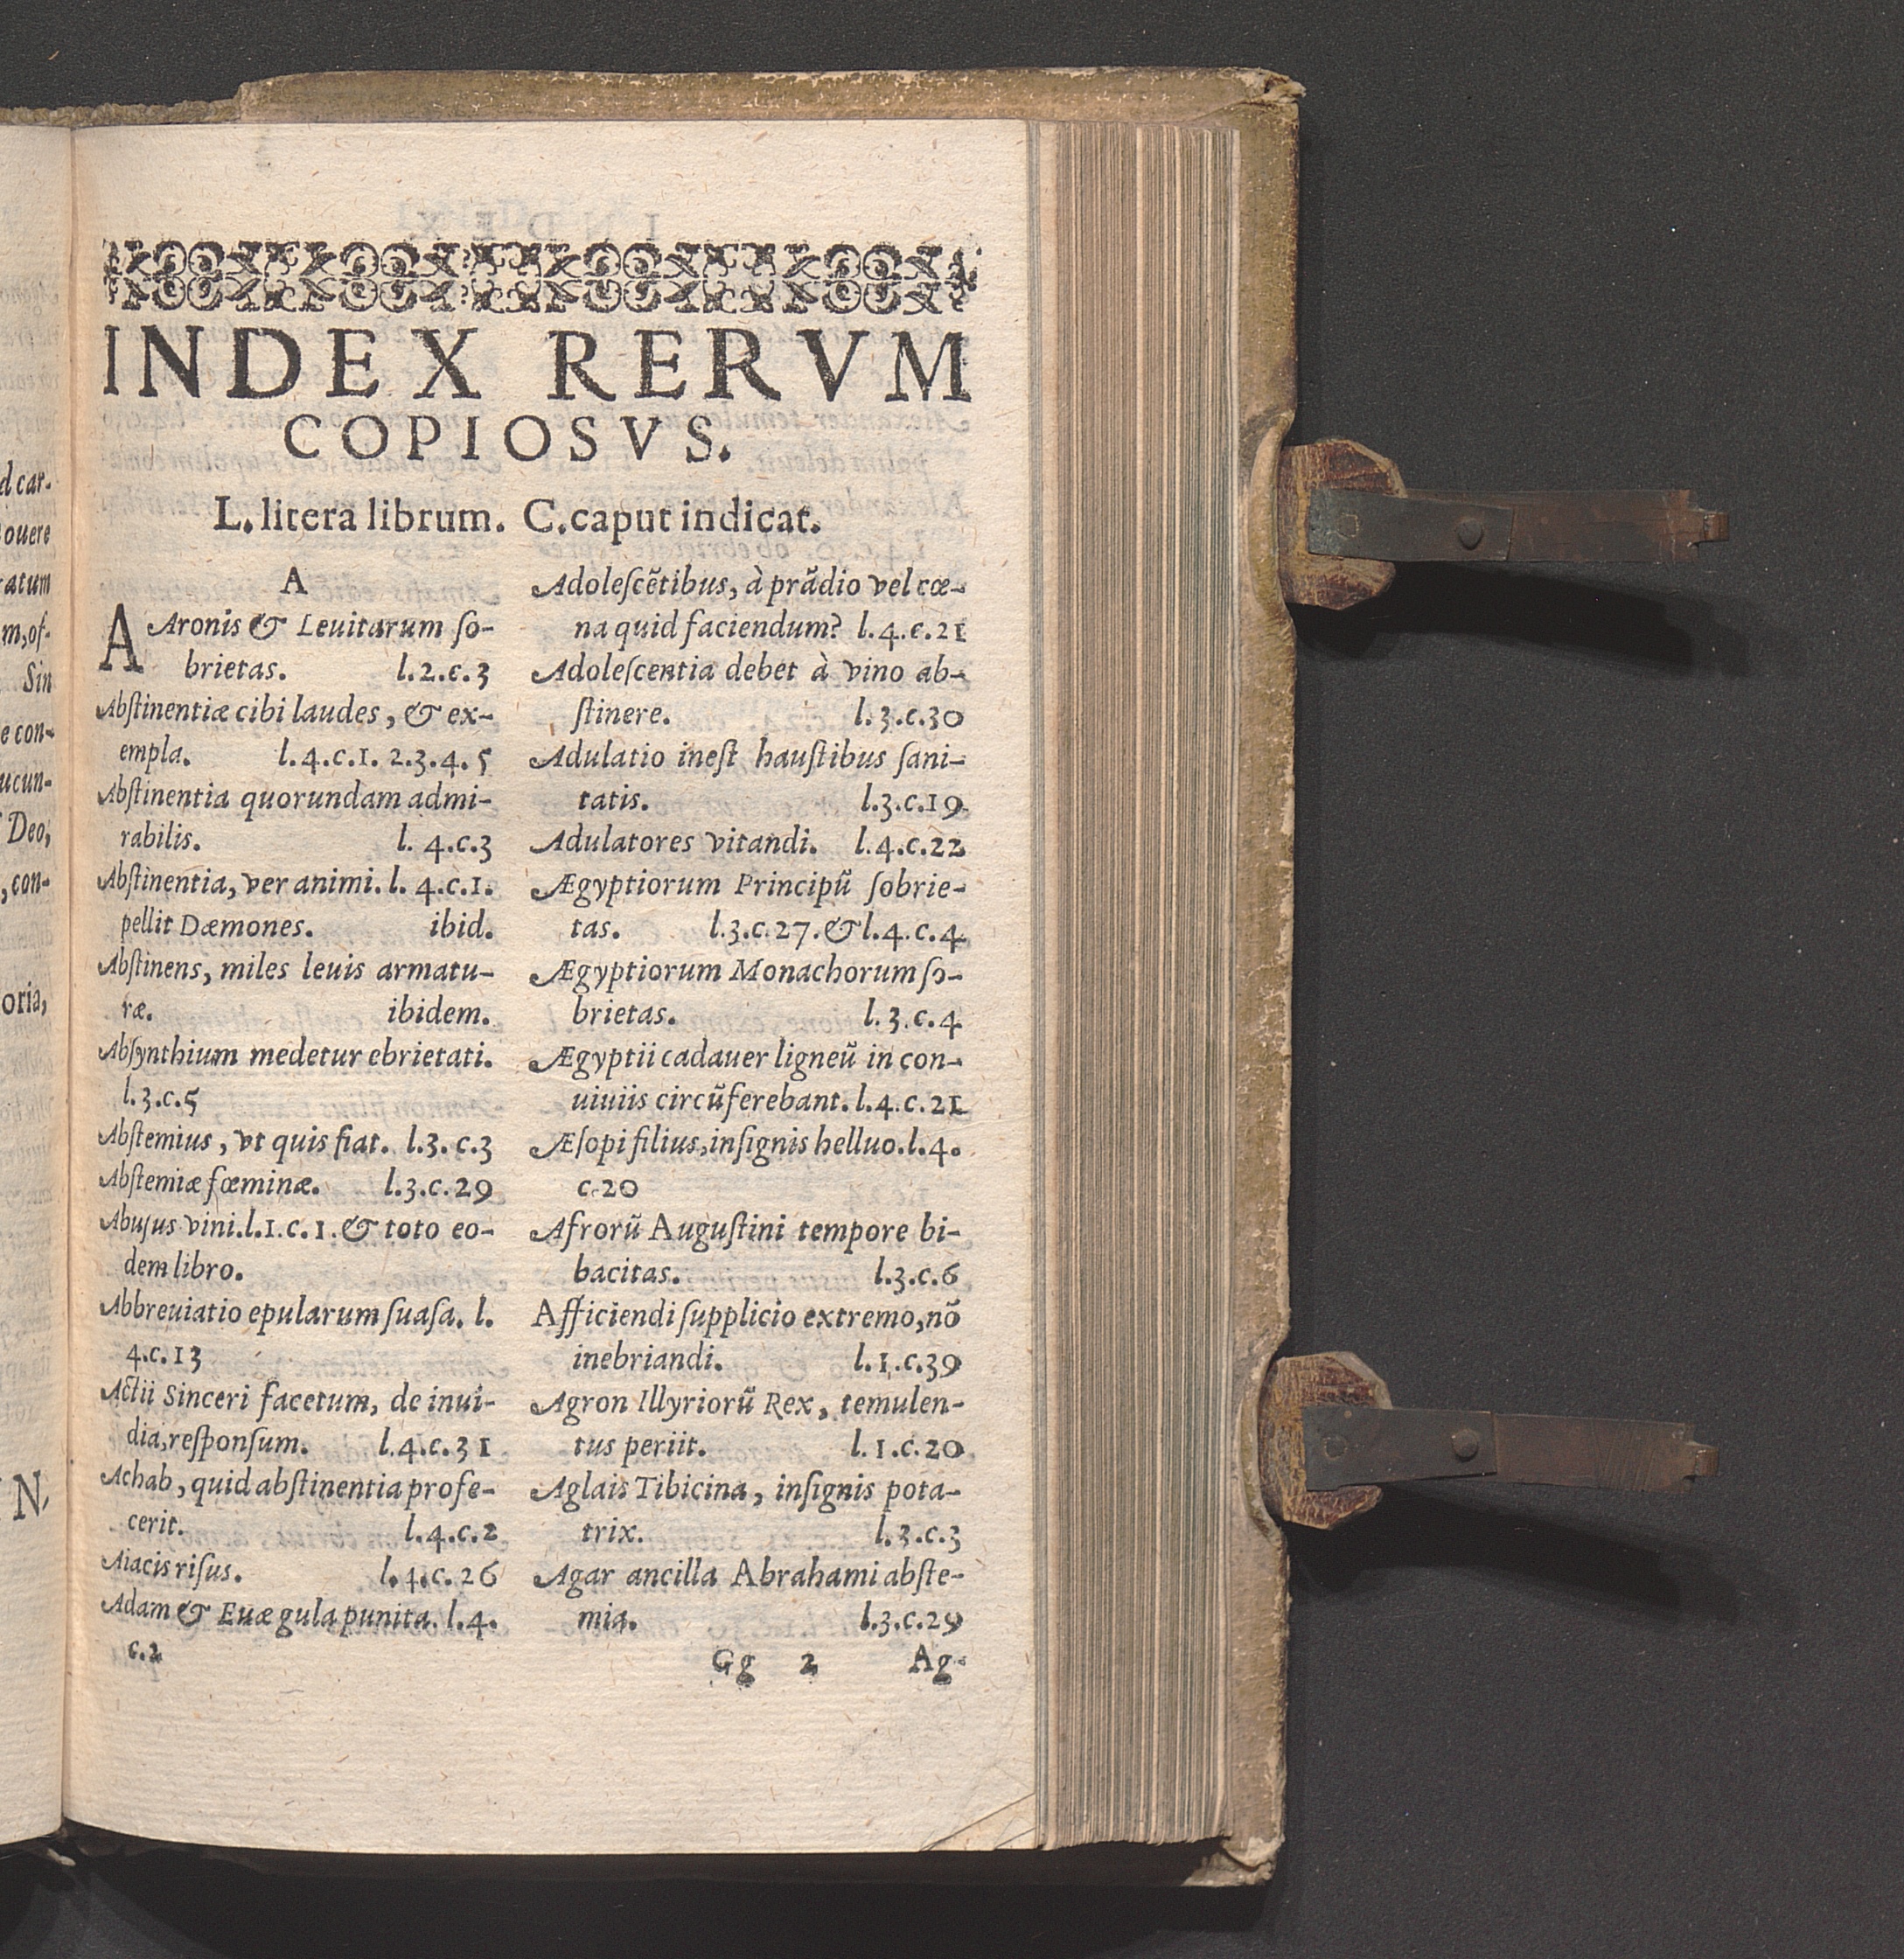 INDEX RERVM
COPIOSVS.
L. litera librum. C. caput indicat.
A
AAronis & Leuitarum ſo-
brietas. l.2.c.3
Abſtinentiæ cibi laudes, & ex-
empla. l.4.c.1. 2.3.4.5
Abſtinentia quorundam admi-
rabilis. l. 4.c.3
Abſtinentia, ver animi. l. 4.c.1.
pellit Dæmones. ibid.
Abſtinens, miles leuis armatu-
ræ. ibidem.
Abſynthium medetur ebrietati.
l.3.c.5
Abſtemius, vt quis fiat. l.3.c.3
Abſtemiæ fœminæ. l.3.c.29
Abuſus vini.l.1.c.1.& toto eo-
dem libro.
Abbreuiatio epularum ſuaſa. l.
4.c.13
Actii Sinceri facetum, de inui-
dia,reſponſum. l.4.c.31
Achab, quid abſtinentia profe-
cerit. l.4.c.2
Aiacis riſus. l.4.c.26
Adam & Euæ gula punita. l.4.
c.2
Adoleſcẽtibus, à prãdio vel cœ-
na quid faciendum? l.4.c.21
Adoleſcentia debet à vino ab-
ſtinere. l.3.c.30
Adulatio ineſt hauſtibus ſani-
tatis. l.3.c.19
Adulatores vitandi. l.4.c.22
Ægyptiorum Principũ ſobrie-
tas. l.3.c.27.& l.4.c.4
Ægyptiorum Monachorum ſo-
brietas. l.3.c.4
Ægyptii cadauer ligneũ in con-
uiuiis circũferebant. l.4.c.21
Æſopi filius,inſignis helluo.l.4.
c.20
Afrorũ Auguſtini tempore bi-
bacitas. l.3.c.6
Afficiendi ſupplicio extremo,nõ
inebriandi. l.1.c.39
Agron Illyriorũ Rex, temulen-
tus periit. l.1.c.20
Aglais Tibicina, inſignis pota-
trix. l.3.c.3
Agar ancilla Abrahami abſte-
mia. l.3.c.29
Gg 2 Ag-
d car-
ouere
ratum
m,of-
Sin
e con-
ucun-
Deo,
, con-
oria,
N-